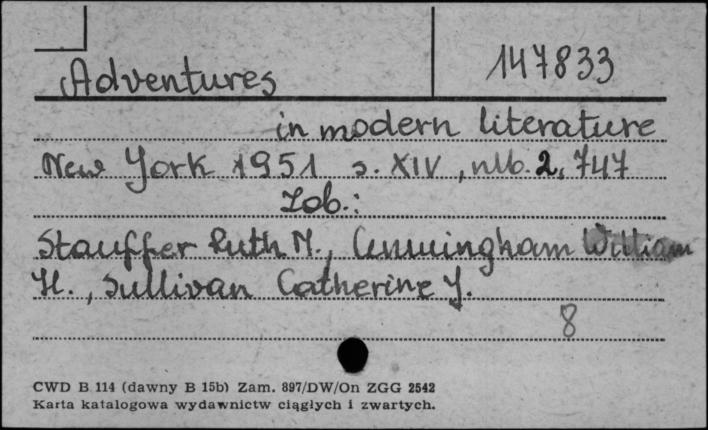 Adventures
147833
in modern literature
New York 1951 s. XIV, nlb. 2, 747
Zob.:
Stauffer Ruth M., Cunningham William
H., Sullivan Catherine J.
8
CWD B 114 (dawny B 15b) Zam. 897/DW/On ZGG 2542
Karta katalogowa wydawnictw ciągłych i zwartych.